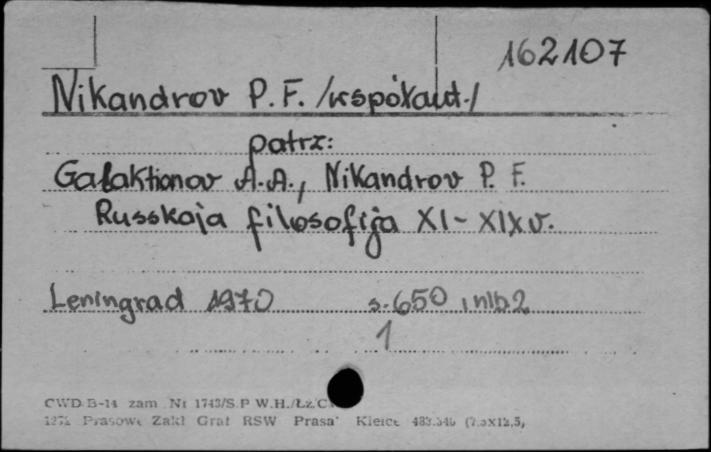 162107
Nikandrov P. F. /współaut./
patrz:
Galaktionov A. A., Nikandrov P. F.
Russkaja filosofija XI-XIX v.
Leningrad 1970 s. 650 , nlb 2
1
CWD B-14 zam Nr 1743/S.P W.H./Łz/C
Prasowe Zakł Graf RSW Prasa Kielce (7,5X12,5,